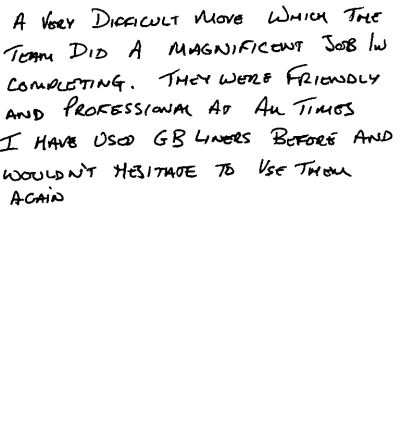 A VERY DIFFICULT MOVE WHICH THE
TEAM DID A MAGNIFICENT JOB IN
COMPLETING. THEY WERE FRIENDLY
AND PROFESSIONAL AT ALL TIMES
I HAVE USED GB LINERS BEFORE AND
WOULDN'T HESITATE TO USE THEM
AGAIN